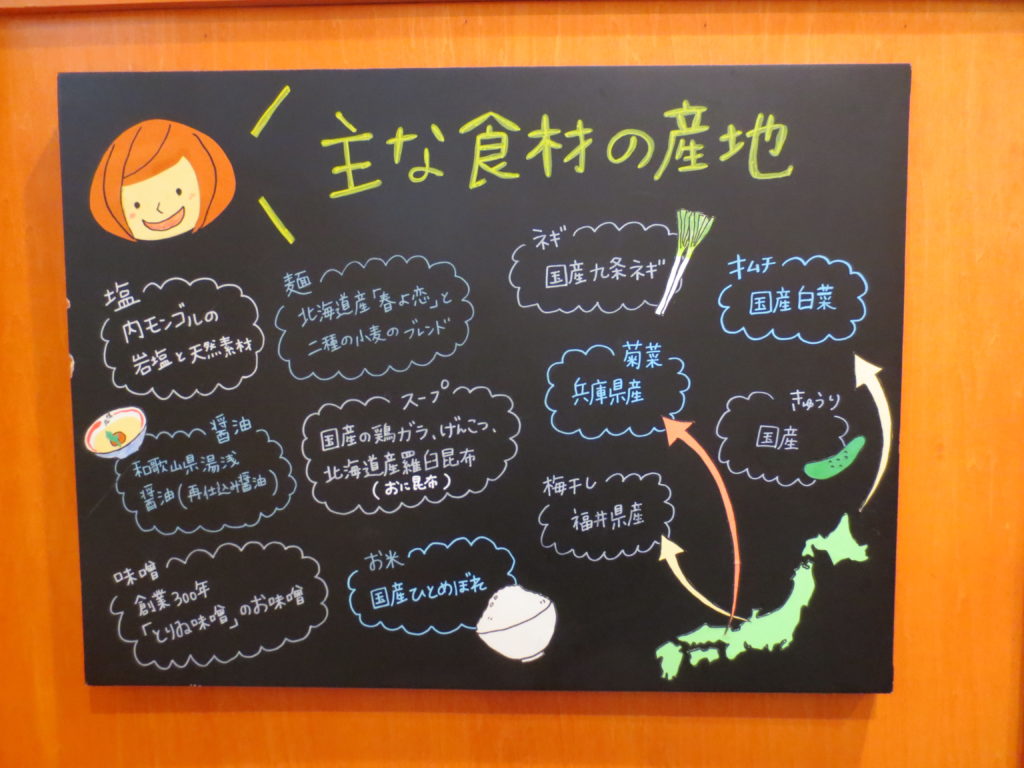 主な食材の産地
塩
内モンゴルの
岩塩と天然素材
麺
北海道産「春よ恋」と
二種の小麦のブレンド
ネギ
国産九条ネギ
キムチ
国産白菜
醤油
和歌山県湯浅
醤油(再仕込み醤油)
スープ
国産の鶏ガラ、げんこつ、
北海道産羅臼昆布
(おに昆布)
菊菜
兵庫県産
きゅうり
国産
梅干し
福井県産
味噌
創業300年
「とりゐ味噌」のお味噌
お米
国産ひとめぼれ